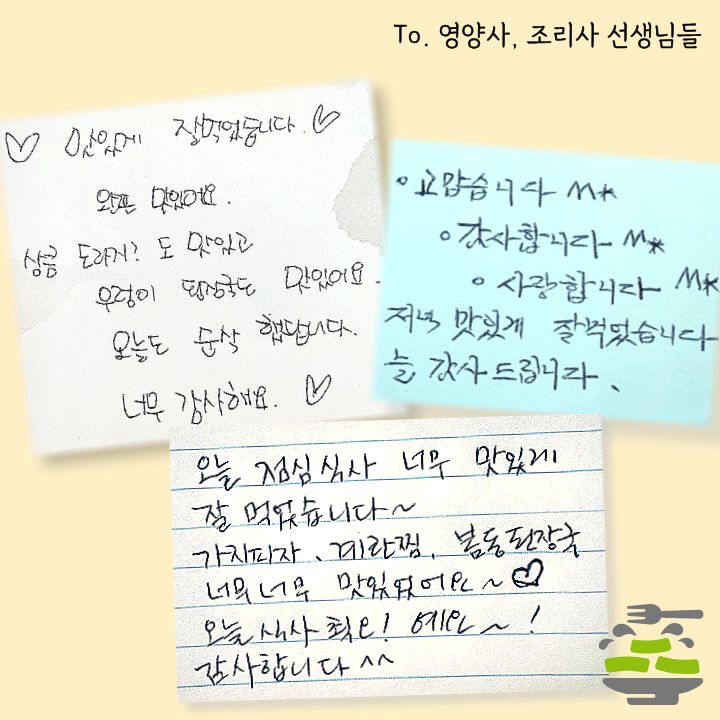 To. 영양사, 조리사 선생님들
♡ 맛있게 잘먹었습니다. ♡
맛있어요.
상큼 도라지? 도 맛있고
우렁이 된장국도 맛있어요.
오늘도 순삭 했답니다.
너무 감사해요. ♡
고맙습니다 M*
감사합니다 M*
사랑합니다 M*
저녁 맛있게 잘먹었습니다
늘 감사드립니다.
오늘 점심식사 너무 맛있게
잘 먹었습니다~
가지피자, 계란찜, 봄동된장국
너무너무 맛있었어요~♡
오늘 식사 최고! 예요~!
감사합니다^^